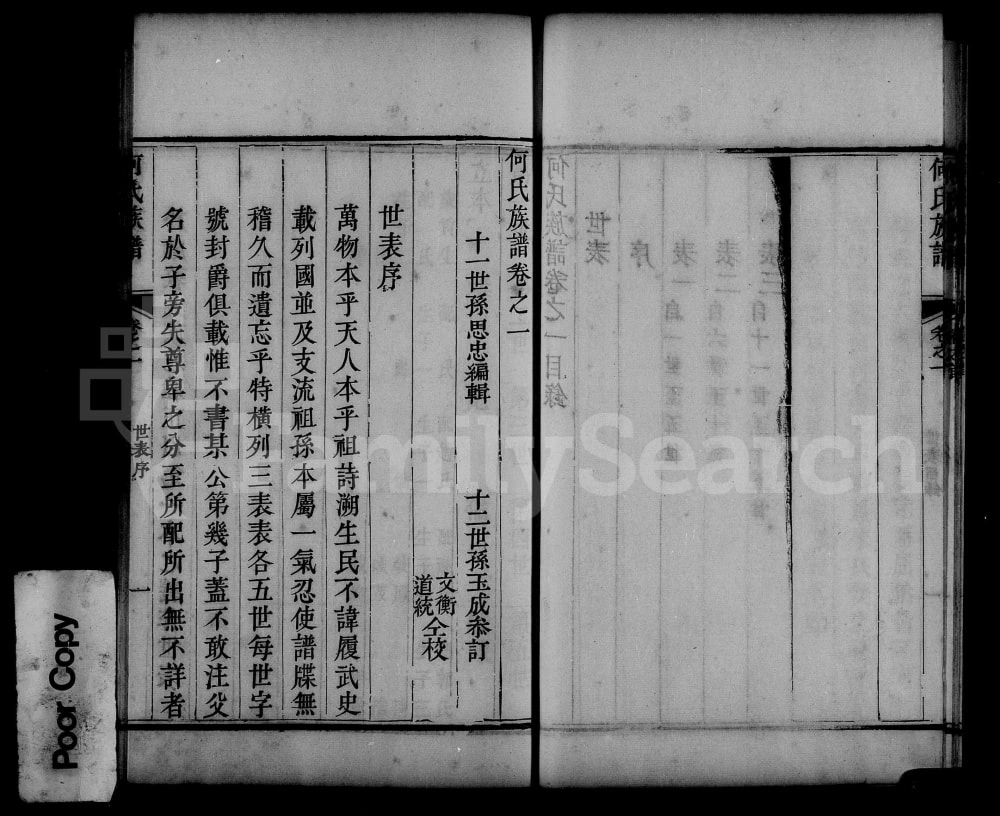 何氏族譜
卷之一
何氏族譜卷之一目錄
世表
序
表一自一世至五世
表二自六世至十世
表三自十一世至
何氏族譜卷之一
十一世孫思忠編輯
十二世孫玉成叅訂
文衡
道統
仝校
世表序
萬物本乎天人本乎祖詩溯生民不諱履武史
載列國並及支流祖孫本屬一氣忍使譜牒無
稽久而遺忘乎特橫列三表表各五世每世字
號封爵俱載惟不書某公第幾子蓋不敢注父
名於子旁失尊卑之分至所配所出無不詳者
何氏族譜
卷之一
世表序
一
FamilySearch
Poor Copy